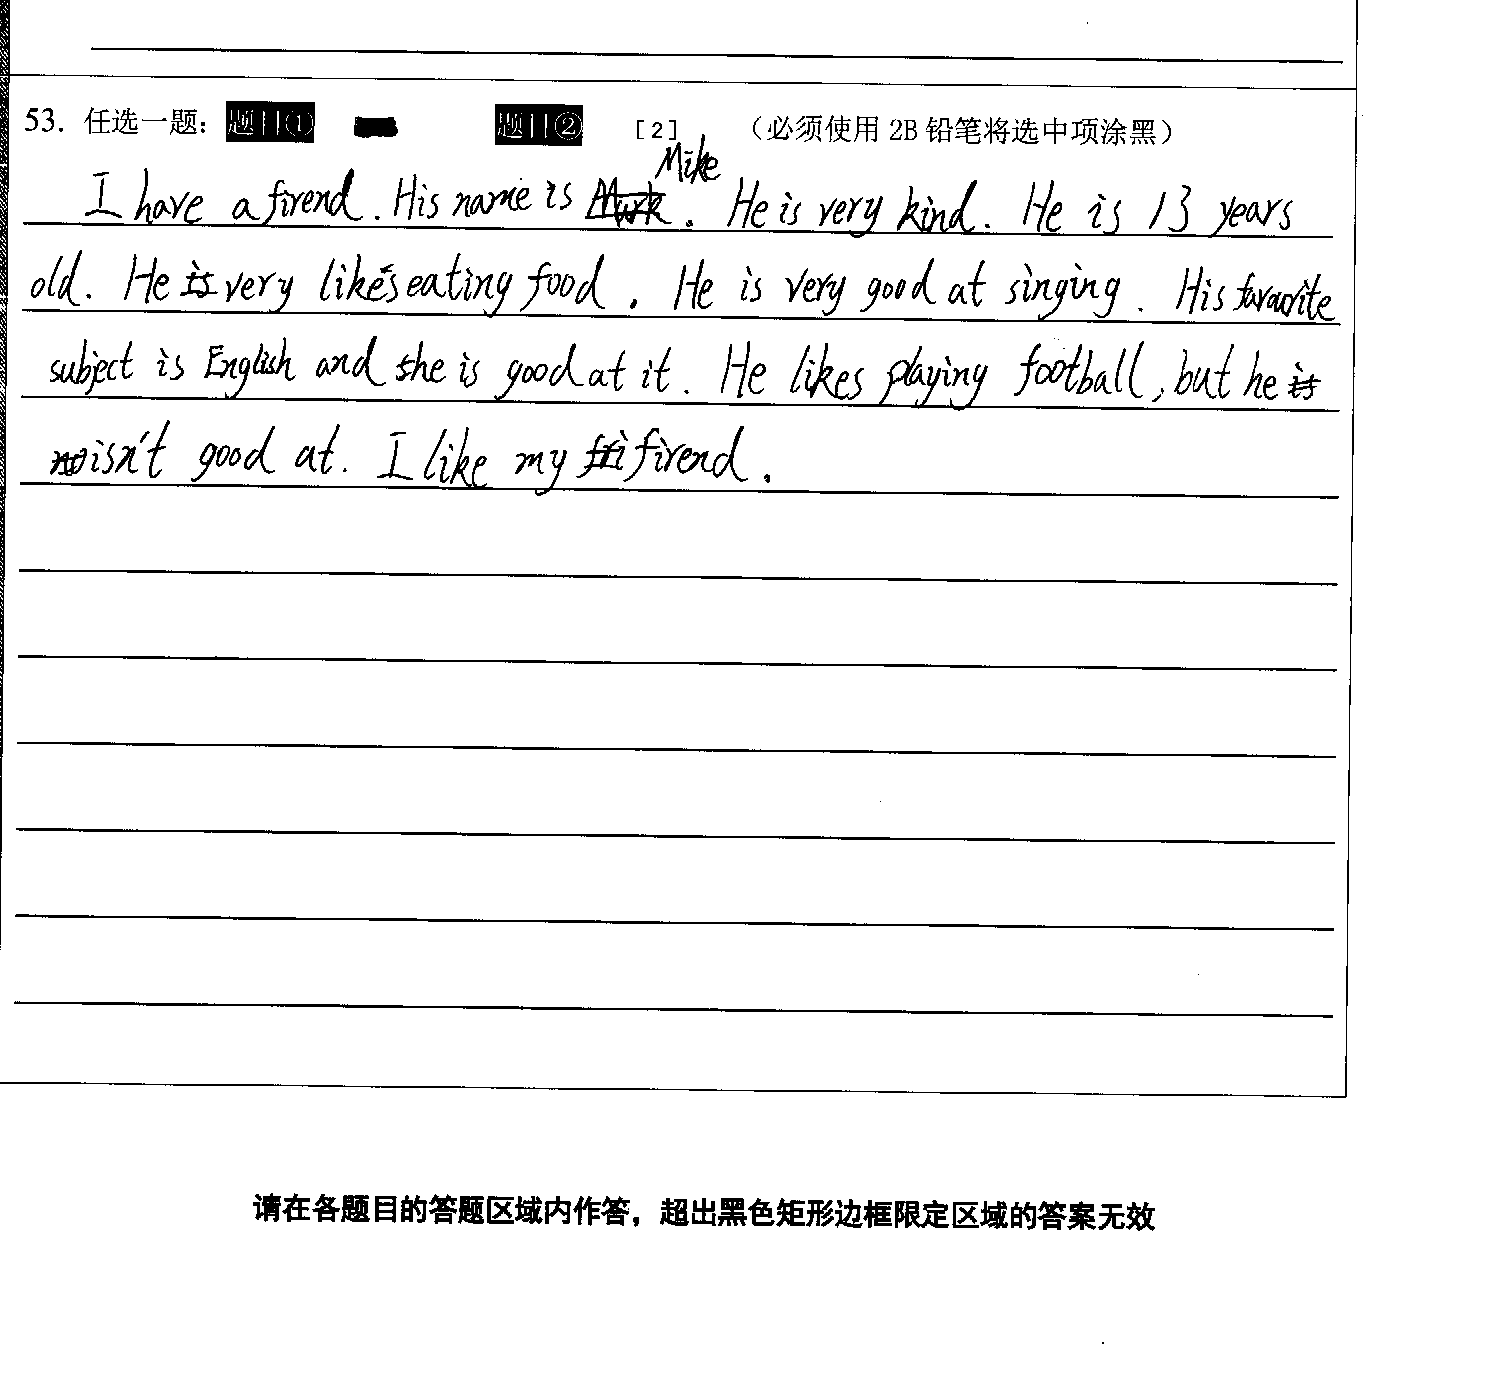 53. 任选一题: 题目① 题目② [2] (必须使用 2B 铅笔将选中项涂黑)
Mike
I have a firend. His name is . He is very kind. He is 13 years
old. He is very likes eating food. He is very good at singing. His favaorite
subject is English and she is good at it. He likes playing football, but he is
no isn't good at. I like my fri firend.
请在各题目的答题区域内作答，超出黑色矩形边框限定区域的答案无效